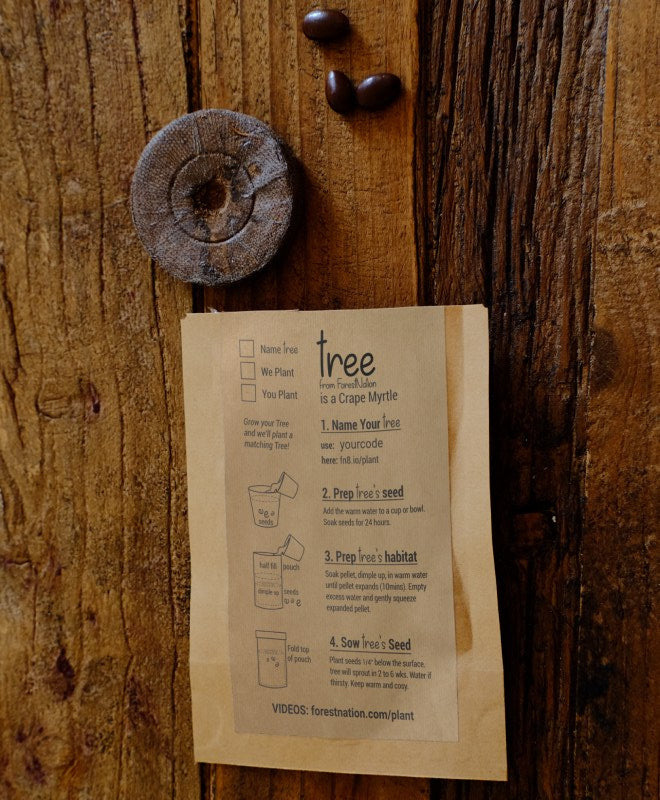 Name tree
We Plant
You Plant
Grow your Tree
and we'll plant a
matching Tree!
tree
from ForestNation
is a Crape Myrtle
1. Name Your tree
use: yourcode
here: fn8.io/plant
seeds
2. Prep tree's seed
Add the warm water to a cup or bowl.
Soak seeds for 24 hours.
half fill pouch
dimple up seeds
3. Prep tree's habitat
Soak pellet, dimple up, in warm water
until pellet expands (10mins). Empty
excess water and gently squeeze
expanded pellet.
Fold top
of pouch
4. Sow tree's Seed
Plant seeds 1/4" below the surface,
tree will sprout in 2 to 6 wks. Water if
thirsty. Keep warm and cosy.
VIDEOS: forestnation.com/plant